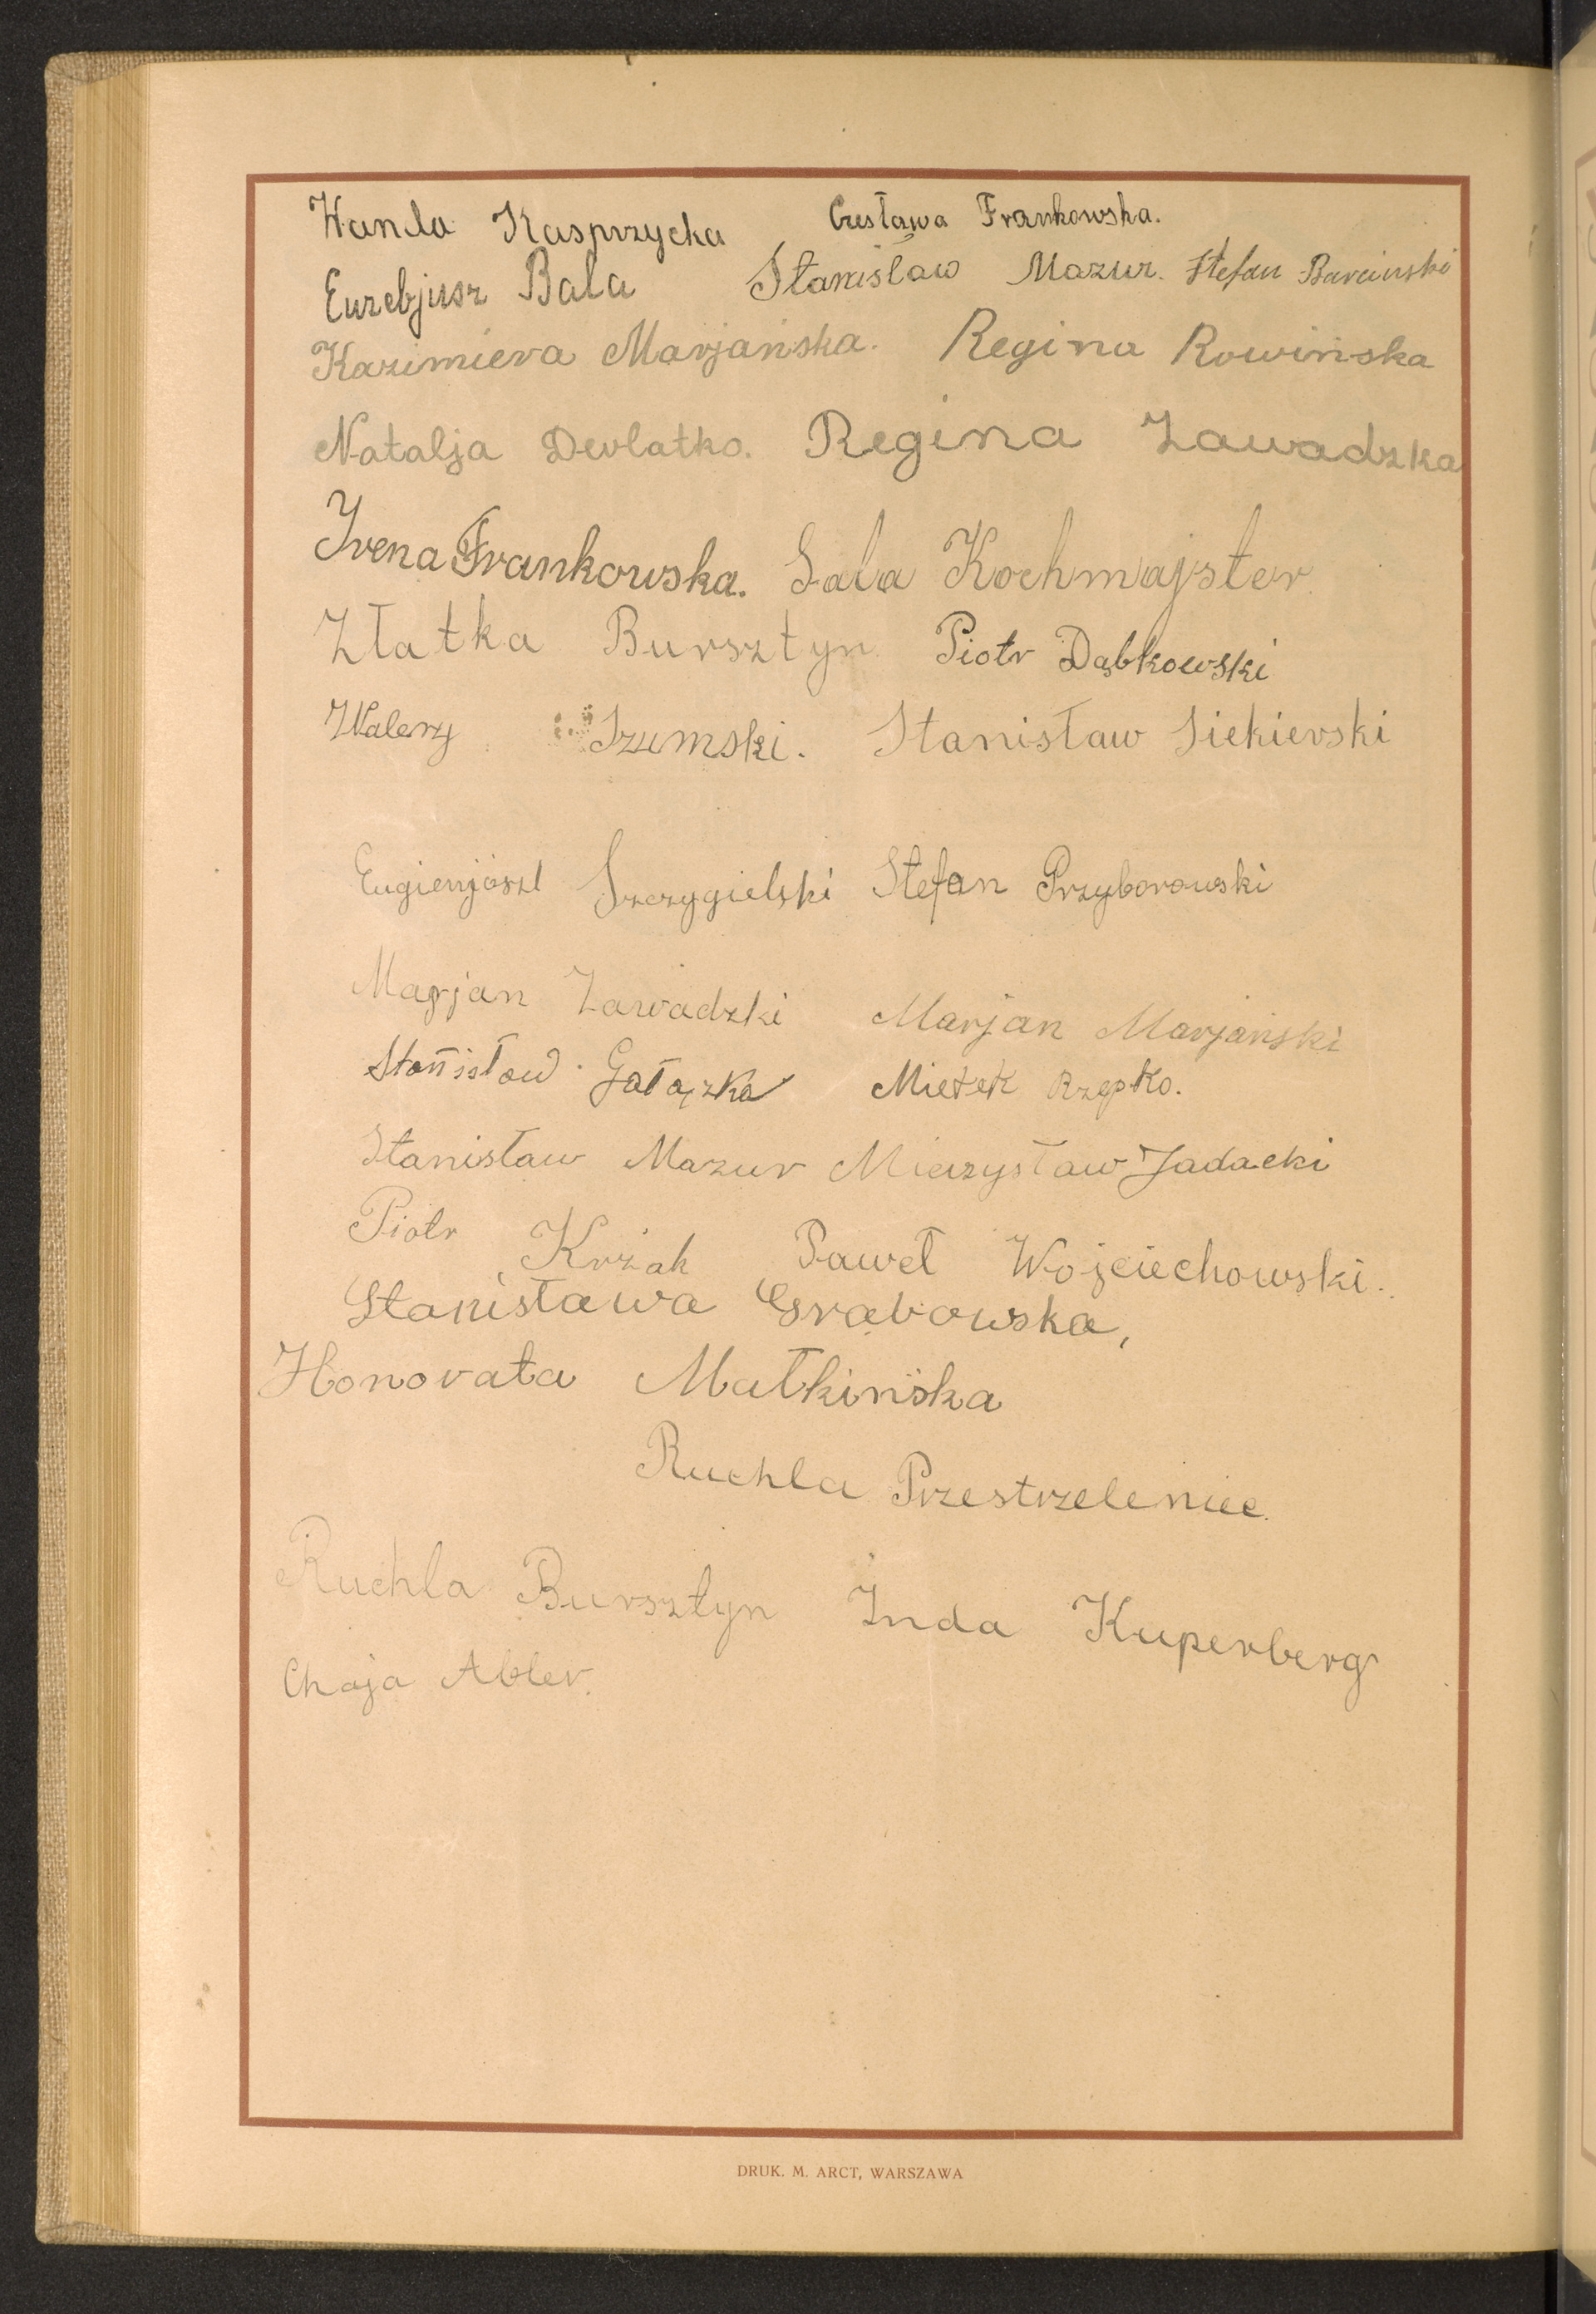 Wanda Kasprzycka Czesława Frankowska.
Euzebjusz Bala Stanisław Mazur. Stefan Barciński
Kazimiera Marjańska. Regina Rowińska
Natalja Dewlatko. Regina Zawadzka
Irena Frankowska. Sala Kochmajster
Złatka Bursztyn Piotr Dąbkowski
Walery Szumski. Stanisław Siekierski
Eugienjószl Szczygielski Stefan Przyborowski
Marjan Zawadzki Marjan Marjański
Stanisław Gałązka Mietek Rzepko.
Stanisław Mazur Mieczysław Jadacki
Piotr Krzak Paweł Wojciechowski.
Stanisława Grabowska,
Honorata Małkińska
Ruchla Przestrzeleniec.
Ruchla Bursztyn Inda Kuperberg
Chaja Abler.
DRUK. M. ARCT, WARSZAWA